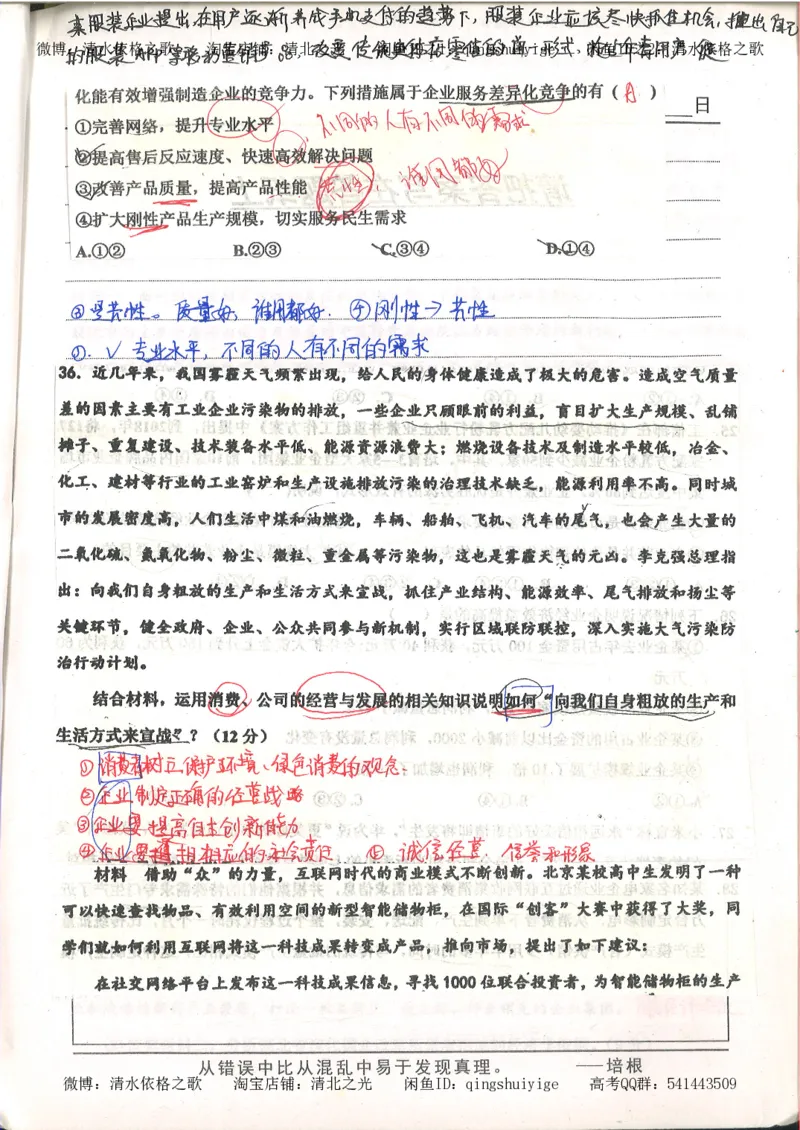 某服装企业提出,在用户逐渐养成手机支付的趋势下,服装企业应该尽快抓住机会,推出自己
微博：清水依格之歌 淘宝店铺：清北之光
的服装APP
化能有效增强制造企业的竞争力。下列措施属于企业服务差异化竞争的有（ A ）
日
①完善网络，提升专业水平
不同的人有不同的需求
②提高售后反应速度、快速高效解决问题
③改善产品质量，提高产品性能
共性 谁用都好
④扩大刚性产品生产规模，切实服务民生需求
A.①② B.②③ C.③④ D.①④
③是共性。质量好，谁用都好. ④刚性→共性
①.✓专业水平,不同的人有不同的需求
36．近几年来，我国雾霾天气频繁出现，给人民的身体健康造成了极大的危害。造成空气质量
差的因素主要有工业企业污染物的排放，一些企业只顾眼前的利益，盲目扩大生产规模、乱铺
摊子、重复建设、技术装备水平低、能源资源浪费大；燃烧设备技术及制造水平较低，冶金、
化工、建材等行业的工业窑炉和生产设施排放污染的治理技术缺乏，能源利用率不高。同时城
市的发展密度高，人们生活中煤和油燃烧，车辆、船舶、飞机、汽车的尾气，也会产生大量的
二氧化硫、氮氧化物、粉尘、微粒、重金属等污染物，这也是雾霾天气的元凶。李克强总理指
出：向我们自身粗放的生产和生活方式来宣战，抓住产业结构、能源效率、尾气排放和扬尘等
关键环节，健全政府、企业、公众共同参与新机制，实行区域联防联控，深入实施大气污染防
治行动计划。
结合材料，运用消费、公司的经营与发展的相关知识说明如何“向我们自身粗放的生产和
生活方式来宣战”？（12分）
①消费者树立保护环境、绿色消费的观念
②企业制定正确的经营战略
③企业要提高自主创新能力
④企业要承担相应的社会责任 ⑤ 诚信经营，信誉和形象
材料 借助“众”的力量，互联网时代的商业模式不断创新。北京某校高中生发明了一种
可以快速查找物品、有效利用空间的新型智能储物柜，在国际“创客”大赛中获得了大奖，同
学们就如何利用互联网将这一科技成果转变成产品，推向市场，提出了如下建议：
在社交网络平台上发布这一科技成果信息，寻找1000位联合投资者，为智能储物柜的生产
从错误中比从混乱中易于发现真理。 ——培根
微博：清水依格之歌 淘宝店铺：清北之光 闲鱼ID：qingshuiyige 高考QQ群：541443509